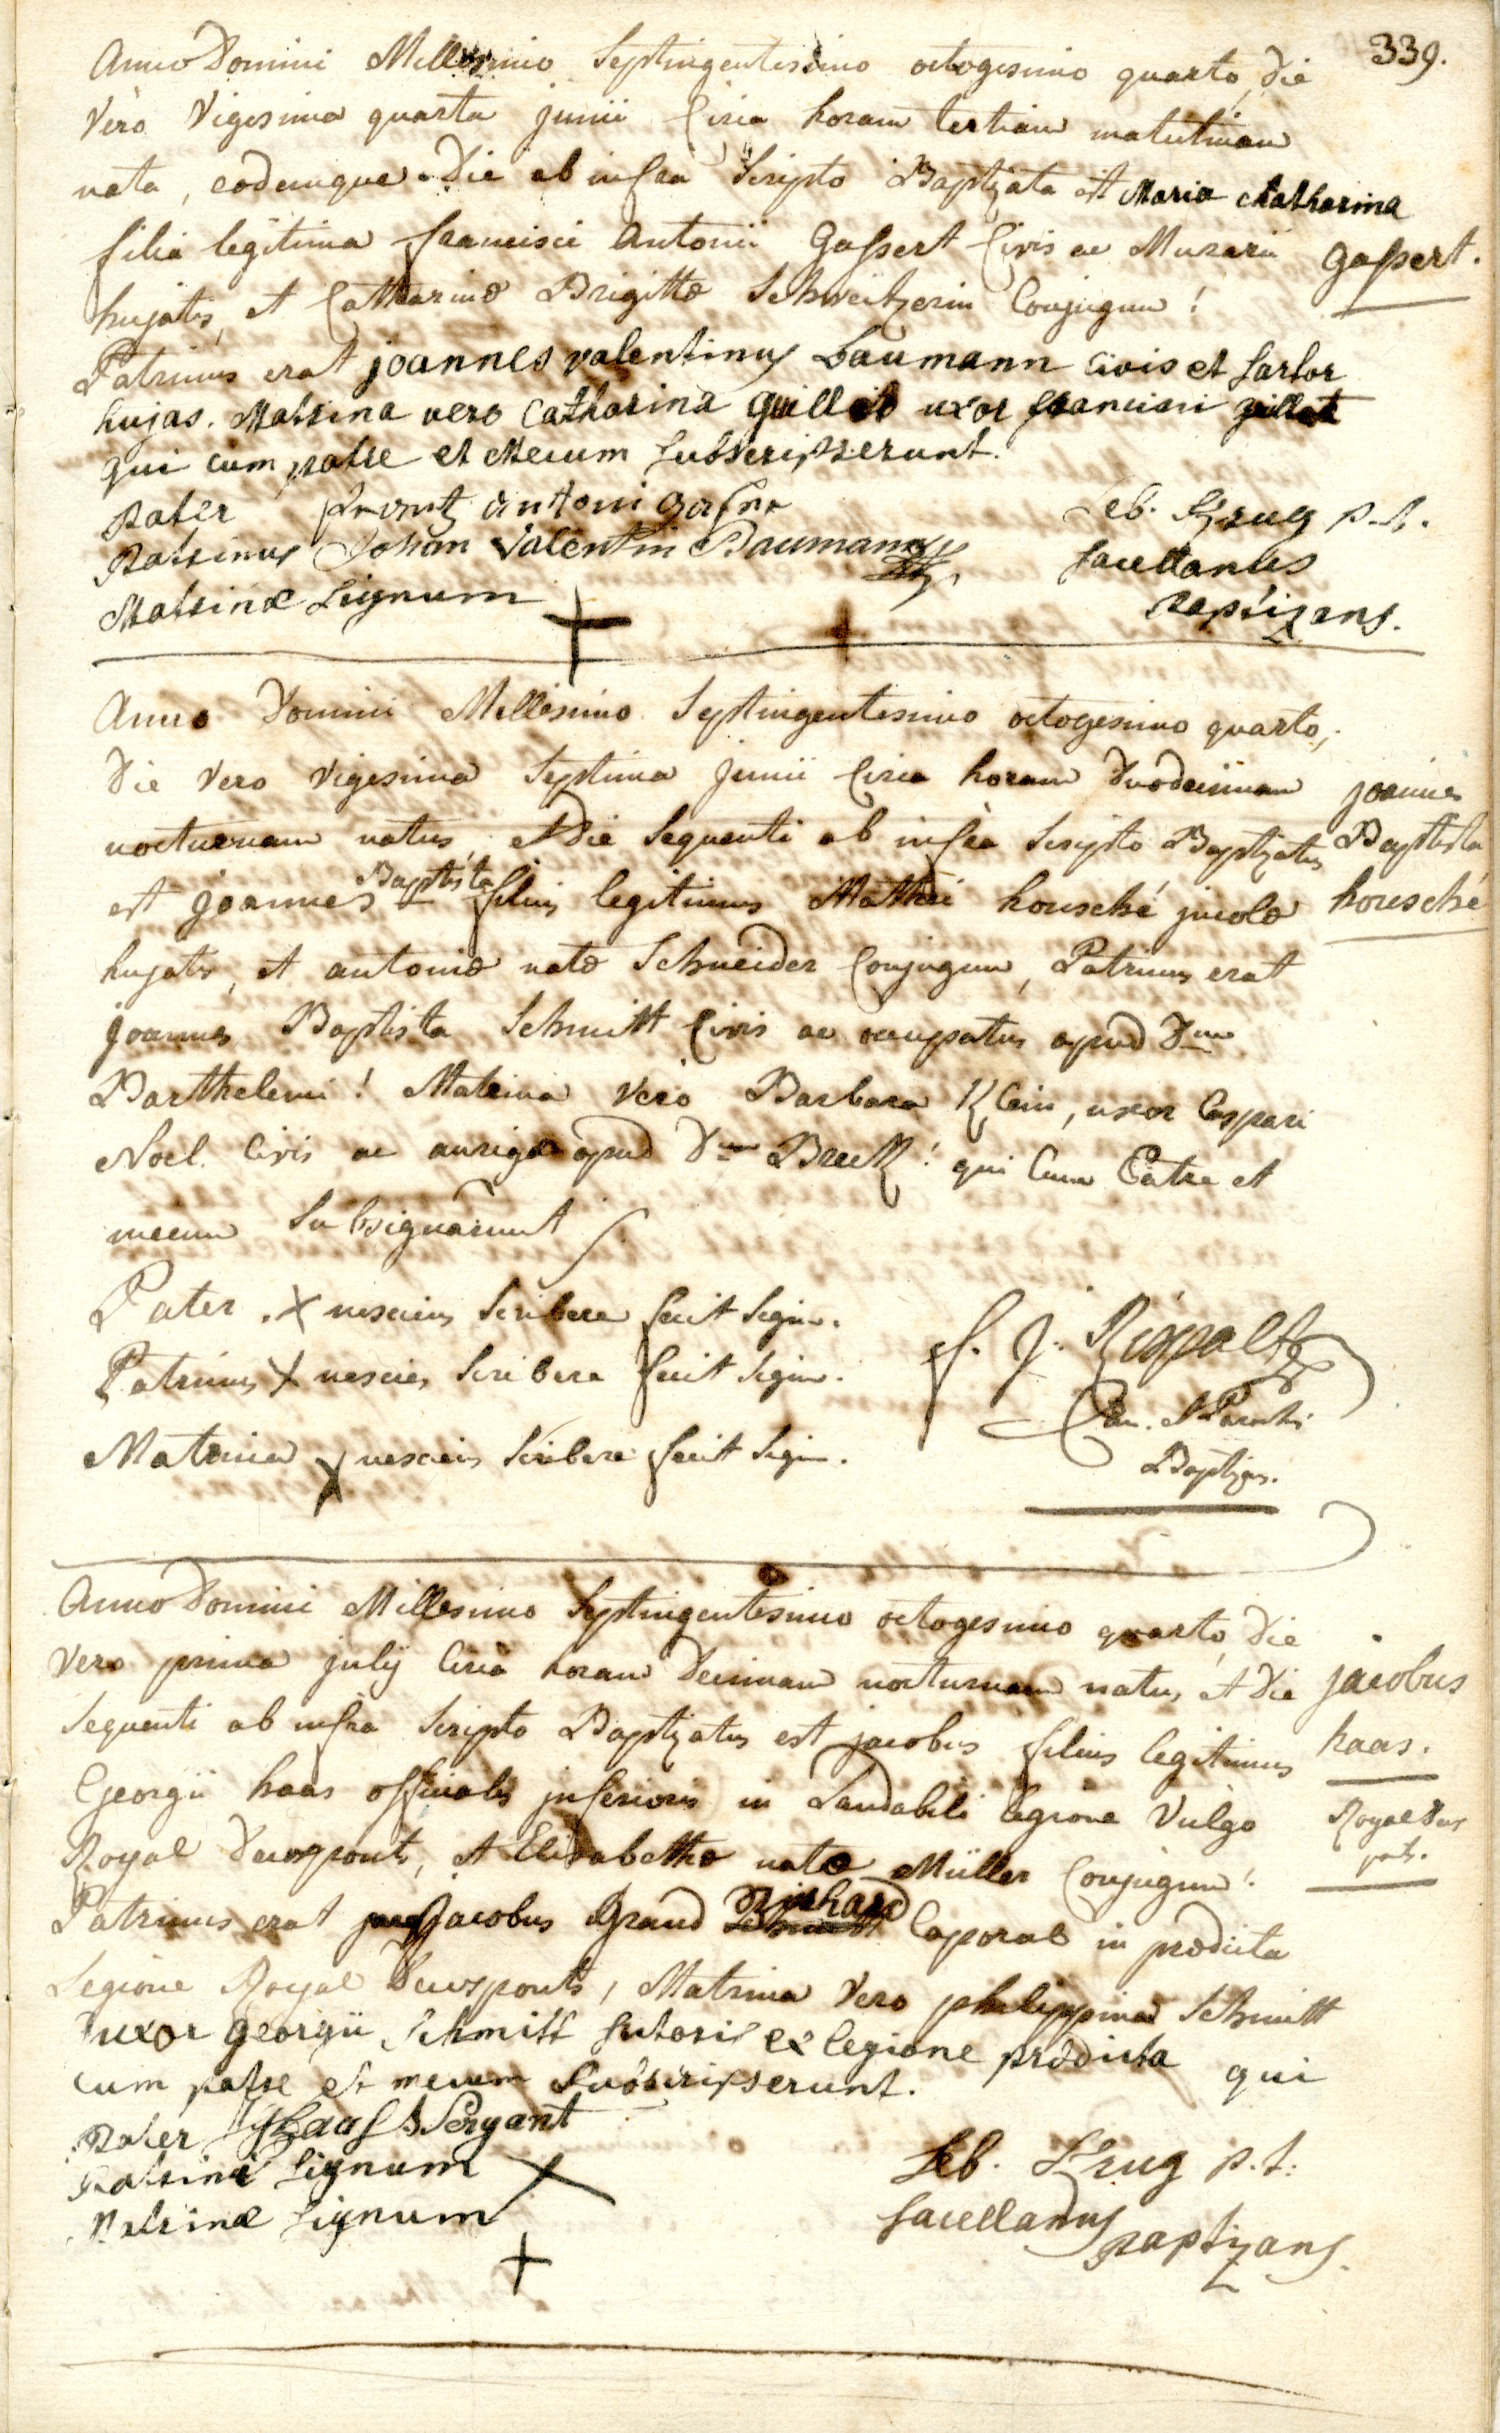 339.
Anno Domini Millesimo Septingentesimo octogesimo quarto, Die
Vero Vigesima quarta junii Circa horam tertiam matutinam
nata, eodemque Die ab infra Scripto Baptizata est Maria Catharina
filia legitima francisci Antonii Gassert Civis ac Murarii
Gassert.
hujatis, et Catharinæ Brigittæ Schweitzerin Conjugum!
Patrinus erat joannes valentinus Baumann civis et sartor
hujas. Matrina vero Catharina Guillet uxor francisci guillet
qui cum patre et mecum subscripserunt.
Pater Frantz antoni
Patrinus Johan Valentin Baumann
Matrinæ Signum +
Seb. Krug p.t.
sacellanus
Baptizans.
Anno Domini Millesimo Septingentesimo octogesimo quarto,
Die Vero Vigesima Septima Junii Circa horam Duodecimam
nocturnam natus, et Die Sequenti ab infra Scripto Baptizatus
est joannes Baptista filius legitimus Matthæi housché incolæ
joannes
Baptista
housché
hujatis, et antoniæ natæ Schneider Conjugum, Patrinus erat
joannes Baptista Schmitt Civis ac occupatus apud Dnum
Barthelemi! Matrina Vero Barbara Klein, uxor Caspari
Noel Civis ac aurigæ apud Dnum Bruck! qui Cum Patre et
mecum Subsignarunt
Pater . X nesciens Scribere fecit Sign.
Patrinus X nesciens Scribere fecit Sign.
Matrina X nesciens Scribere fecit Sign.
f. J. Rigpaltz
Baptizans.
Anno Domini Millesimo Septingentesimo octogesimo quarto, Die
Vero prima julij Circa horam Decimam nocturnam natus, et Die
Sequenti ab infra Scripto Baptizatus est jacobus filius legitimus
jacobus
haas.
Georgii haas officialis inferioris in Laudabili legione Vulgo
Royal Deuxponts, et Elisabethæ natæ Müller Conjugum!
Royal Deux
ponts.
Patrinus erat Jacobus Grand Caporal in prædicta
Legione Royal Deuxponts, Matrina Vero philippina Schmitt
uxor georgii Schmitt sutoris ex legione prædicta qui
cum patre et mecum subscripserunt.
Pater Haas Sergant
Patrini Signum X
Matrinæ Signum +
Seb. Krug p.t.
sacellanus
Baptizans.